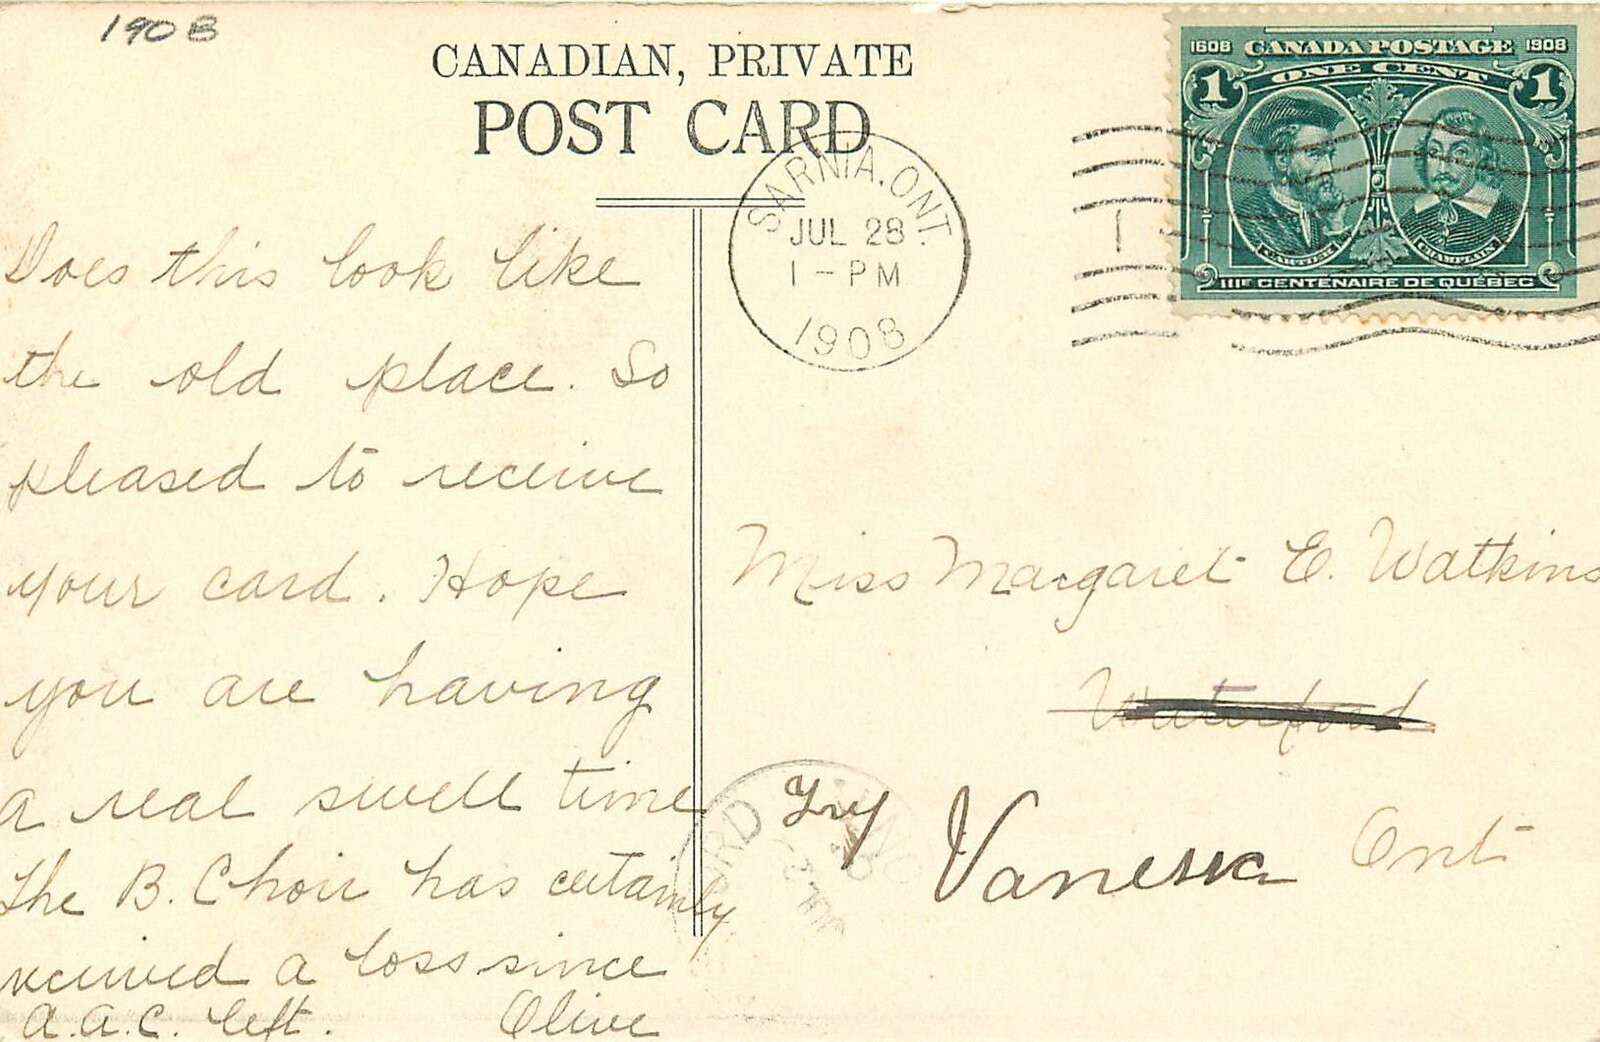 1908
CANADIAN, PRIVATE
POST CARD
1608 CANADA POSTAGE 1908
1 ONE CENT 1
CARTIER CHAMPLAIN
IIIE CENTENAIRE DE QUÉBEC
SARNIA, ONT.
JUL 28
1 - PM
1908
1
Does this look like
the old place. So
pleased to receive
your card. Hope
you are having
a real swell time
The B. Choir has certainly
received a loss since
A.A.C. left. Olive
Miss Margaret E. Watkins
Waterford
Try Vanessa Ont